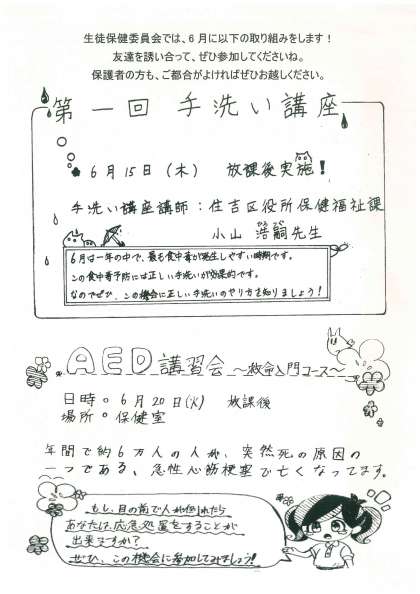 生徒保健委員会では、6月に以下の取り組みをします！
友達を誘い合って、ぜひ参加してくださいね。
保護者の方も、ご都合がよければぜひお越しください。
第一回 手洗い講座
6月15日（木） 放課後実施！
手洗い講座講師：住吉区役所保健福祉課
小山 浩嗣先生
6月は一年の中で、最も食中毒が発生しやすい時期です。
この食中毒予防には正しい手洗いが効果的です。
なのでぜひ、この機会に正しい手洗いのやり方を知りましょう！
AED講習会 〜救命入門コース〜
日時。6月20日(火) 放課後
場所。保健室
年間で約6万人の人が、突然死の原因の
一つである、急性心筋梗塞で亡くなってます。
もし、目の前で人が倒れたら
あなたは応急処置をすることが
出来ますか？
ぜひ、この機会に参加してみましょう！！